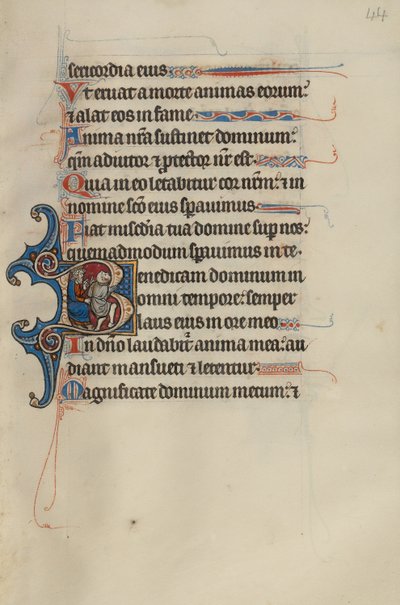 44
sericordia eius
Vt eruat a morte animas eorum:
⁊ alat eos in fame
Anima nr̃a sustinet dominum:
qm̃ adiutor ⁊ ꝓtector nr̃ est
Quia in eo letabitur cor nrm̃: ⁊ in
nomine scõ eius sꝑauimus
Fiat miscd̃ia tua domine suꝑ nos:
quemadmodum sꝑauimus in te
Benedicam dominum in
omni tempore: semper
laus eius in ore meo
In dño laudabit᷑ anima mea: au
diant mansueti ⁊ letentur
Magnificate dominum mecum: ⁊